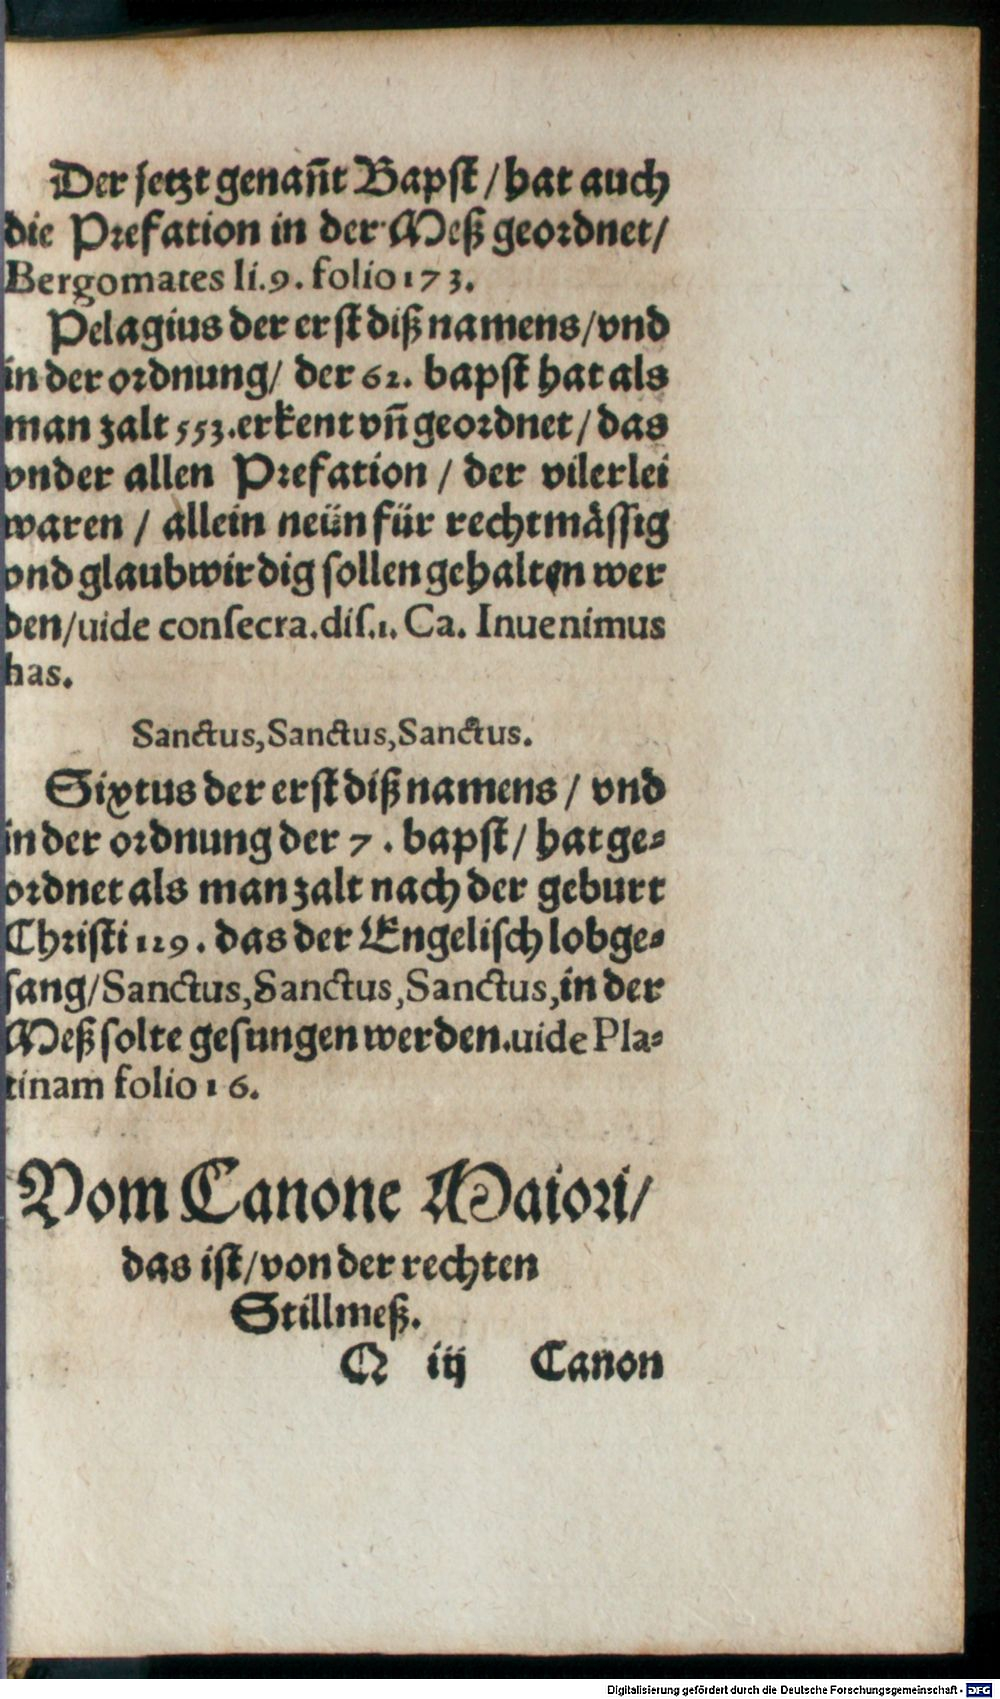 Der jetzt genañt Bapst / hat auch
die Prefation in der Meß geordnet /
Bergomates li.9. folio 173.
Pelagius der erst diß namens / vnd
in der ordnung / der 62. bapst hat als
man zalt 553. erkent vñ geordnet / das
vnder allen Prefation / der vilerlei
waren / allein neün für rechtmässig
vnd glaubwirdig sollen gehalten wer
den / uide consecra.dis.1. Ca. Inuenimus
has.
Sanctus, Sanctus, Sanctus.
Sixtus der erst diß namens / vnd
in der ordnung der 7. bapst / hat ge-
ordnet als man zalt nach der geburt
Christi 129. das der Engelisch lobge-
sang / Sanctus, Sanctus, Sanctus, in der
Meß solte gesungen werden. uide Pla-
tinam folio 16.
Vom Canone Maiori /
das ist / von der rechten
Stillmeß.
Q iij Canon
Digitalisierung gefördert durch die Deutsche Forschungsgemeinschaft - DFG